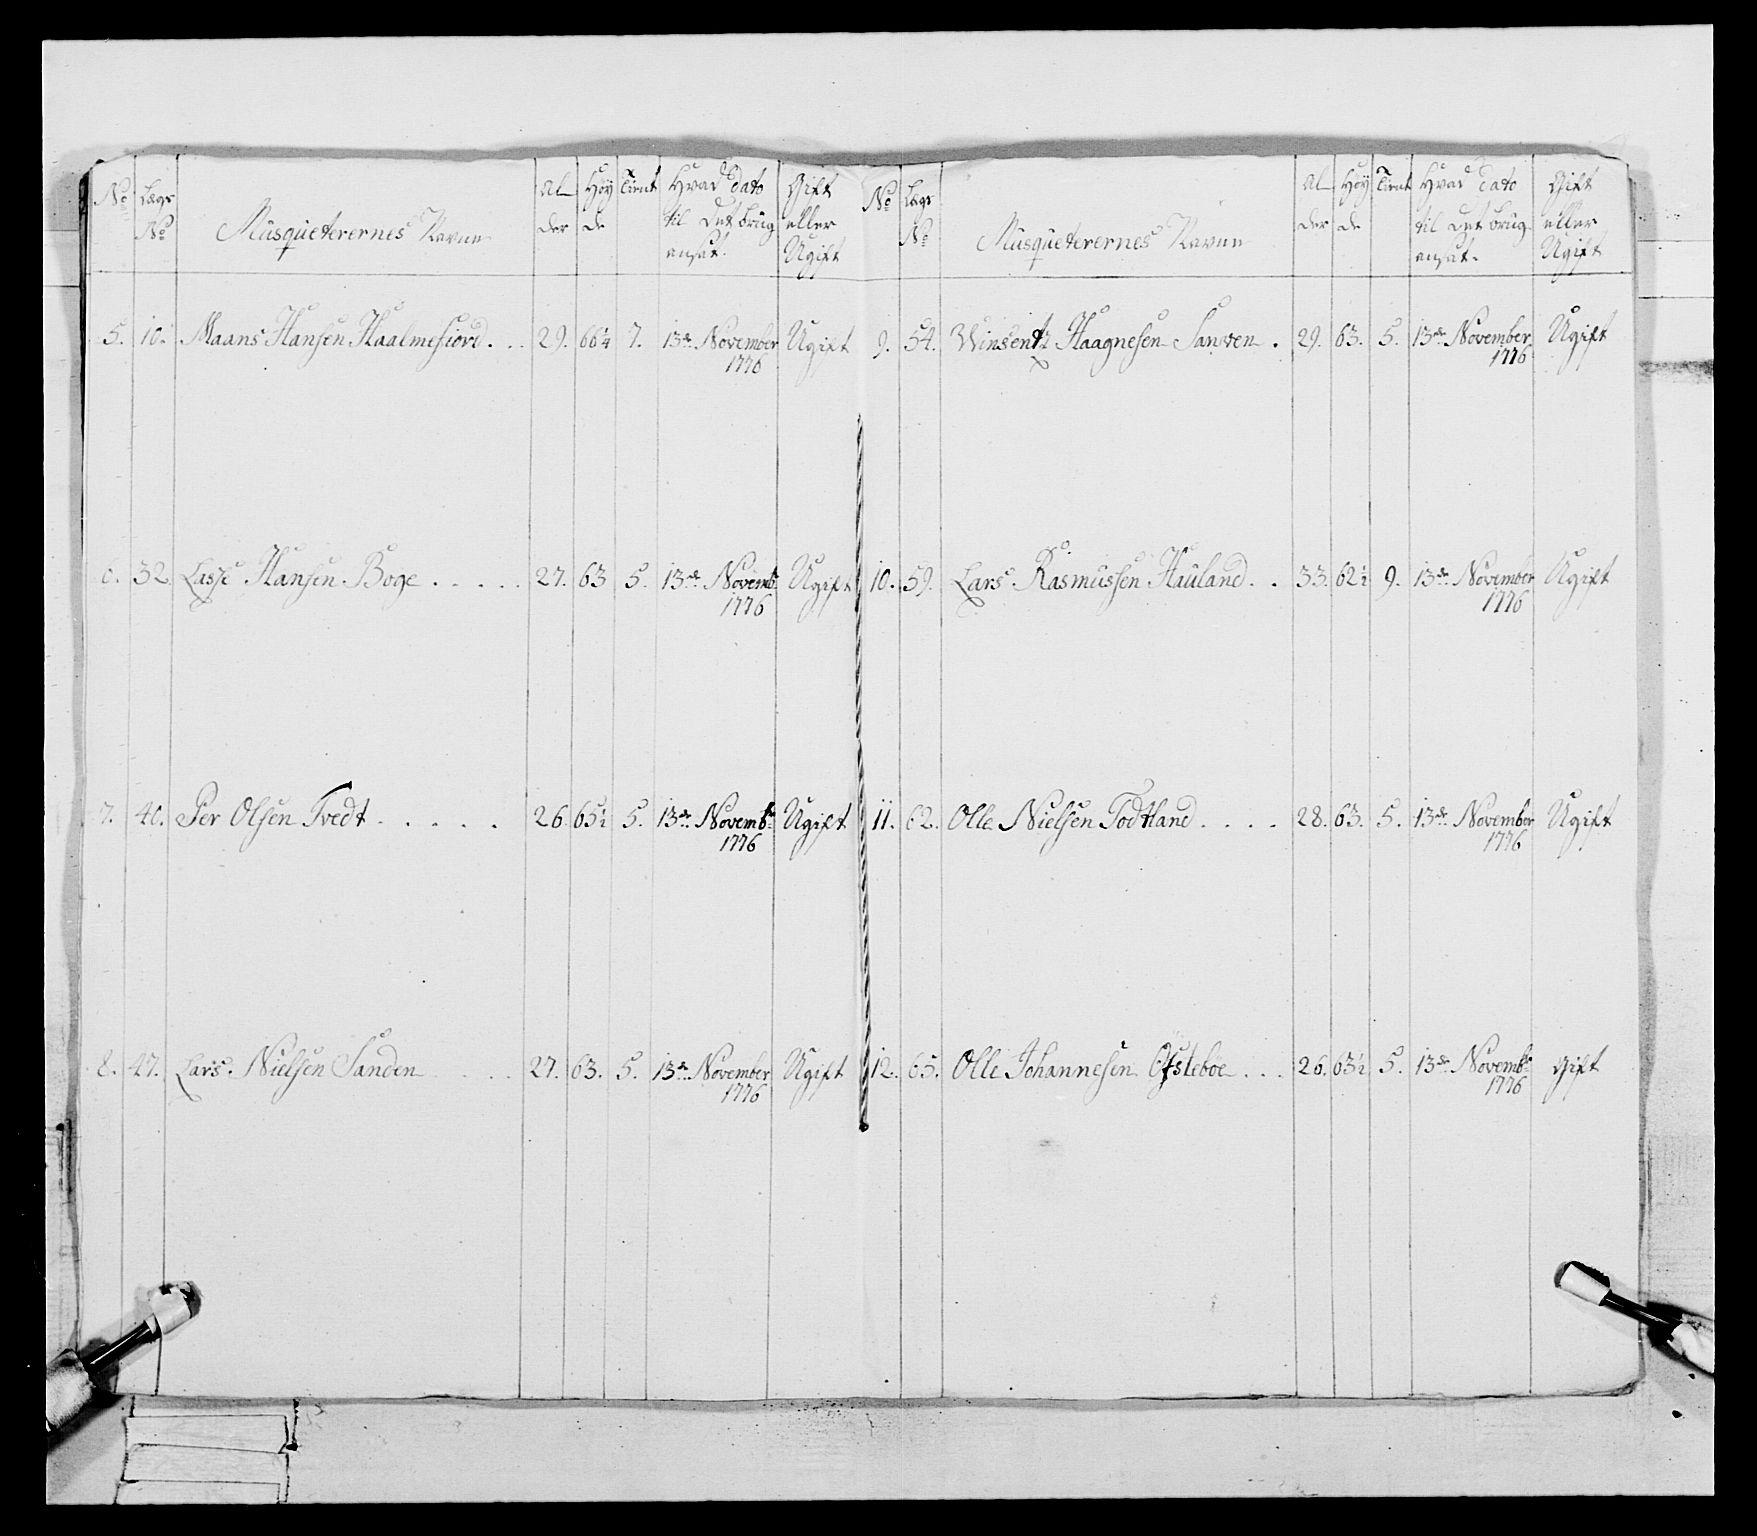 No Lægs No Musqueterernes Navne Al der Høy de Tient Hvad dato til det brug ansat. Gift eller Ugift
5. 10. Maans Hansen Haalmefiord . . 29. 66¼ 7. 13de November 1776 Ugift
6. 32. Lasse Hansen Boge . . . . . 27. 63 5. 13de Novembr 1776 Ugift
7. 40. Per Olsen Tvedt . . . . . 26. 65½ 5. 13de Novembr 1776 Ugift
8. 47. Lars Nielsen Sanden . . . . 27. 63. 5. 13de November 1776 Ugift
No Lægs No Musqueterernes Navne Al der Høy de Tient Hvad dato til det brug ansat. Gift eller Ugift
9. 54. Winsentz Haagnesen Sanven . 29. 63. 5. 13de November 1776 Ugift
10. 59. Lars Rasmussen Hauland . . 33. 62½ 9. 13de November 1776 Ugift
11. 62. Olle Nielsen Todtland . . . . 28. 63. 5. 13de November 1776 Ugift
12. 65. Olle Johannesen Øfstebøe . . . 26. 63½ 5. 13de Novembr 1776 Gift